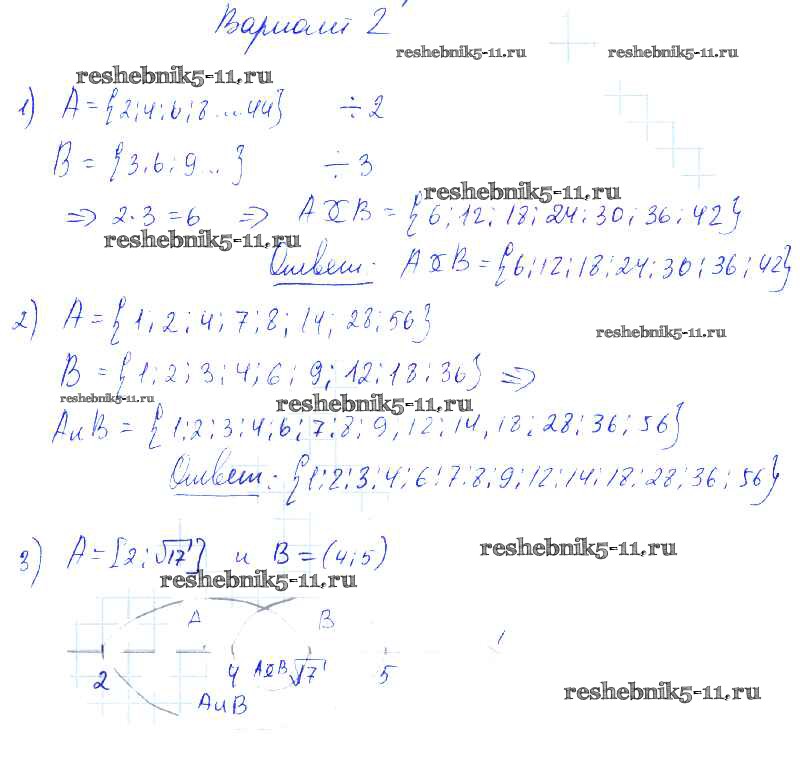 Вариант 2
reshebnik5-11.ru reshebnik5-11.ru
reshebnik5-11.ru
1) A = {2; 4; 6; 8 ... 44} ÷ 2
B = {3, 6; 9 .. } ÷ 3
reshebnik5-11.ru
=> 2·3 = 6 => A и B = {6; 12; 18; 24; 30; 36; 42}
reshebnik5-11.ru
Ответ: A и B = {6; 12; 18; 24; 30; 36; 42}
2) A = {1; 2; 4; 7; 8; 14; 28; 56}
reshebnik5-11.ru
B = {1; 2; 3; 4; 6; 9; 12; 18; 36} =>
reshebnik5-11.ru reshebnik5-11.ru
A и B = {1; 2; 3; 4; 6; 7; 8; 9, 12; 14, 18; 28; 36; 56}
Ответ: {1; 2; 3; 4; 6; 7; 8; 9; 12; 14; 18; 28; 36; 56}
3) A = [2; √17] и B = (4; 5)
reshebnik5-11.ru
reshebnik5-11.ru
A B
2 4 A и B √17 5
A и B
reshebnik5-11.ru